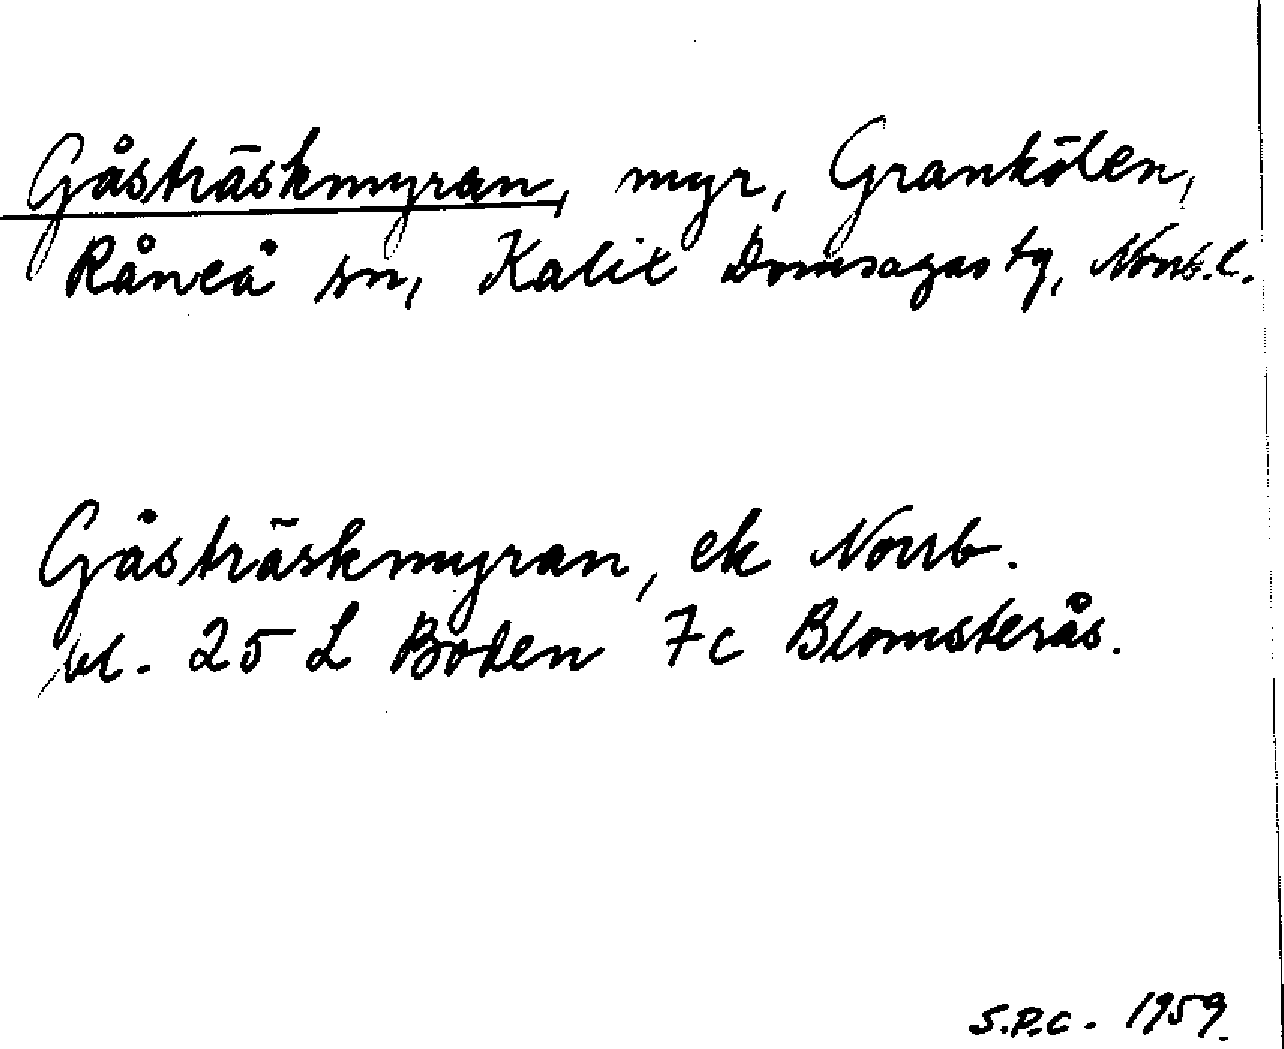 Gåsträskmyran, myr, Grankölen,
Råneå sn, Kalix Domsagas tg, Norrb. l.
Gåsträskmyran, ek Norrb.
bl. 25 L Boden 7c Blomsterås.
S.P.C. 1959.